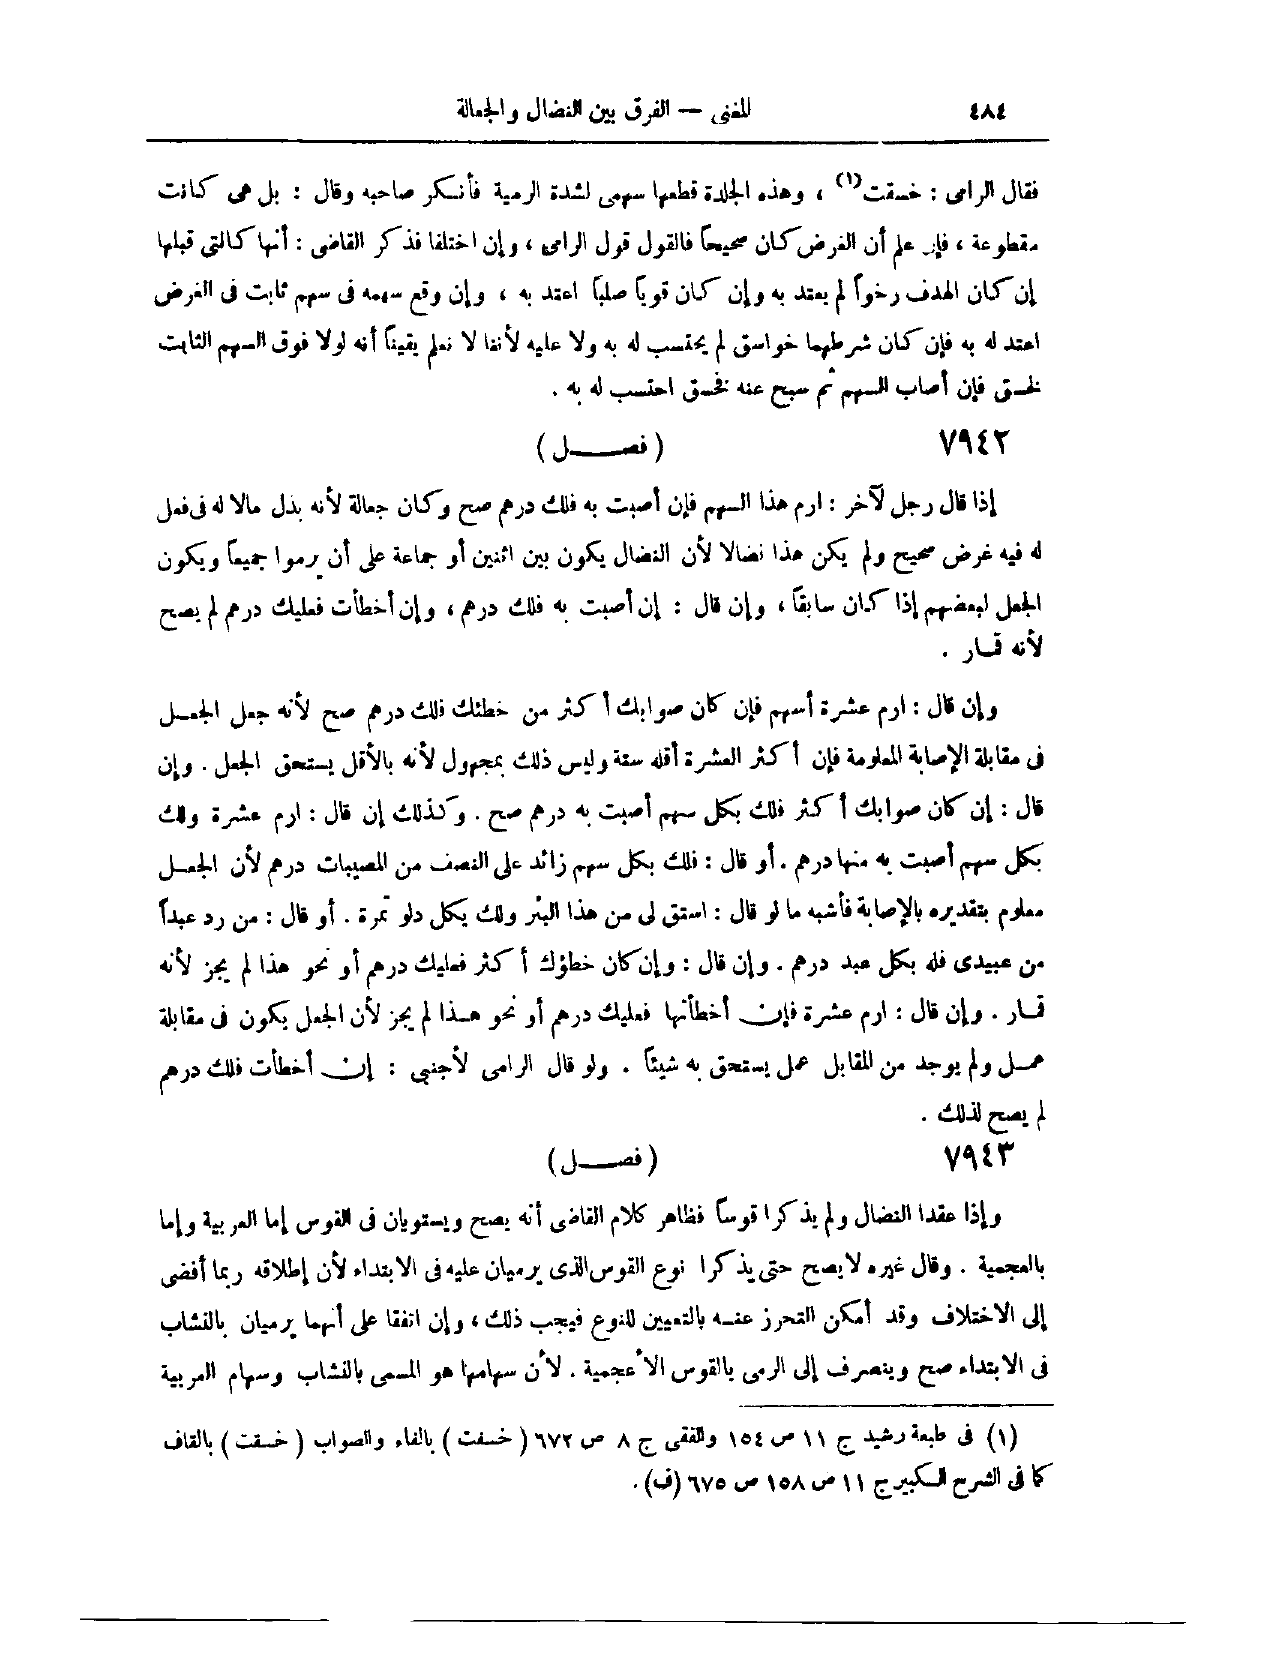 ٤٨٤ المغنى — الفرق بين النضال والجعالة
فقال الرامى : خسقت(١) ، وهذه الجلدة قطعها سهمى لشدة الرمية فأنكر صاحبه وقال : بل هى كانت
مقطوعة ، فإن علم أن الغرض كان صحيحاً فالقول قول الرامى ، وإن اختلفا فذكر القاضى : أنها كالتى قبلها
إن كان الهدف رخواً لم يعتد به وإن كان قوياً صلباً اعتد به ، وإن وقع سهمه فى سهم ثابت فى الغرض
اعتد له به فإن كان شرطهما خواسق لم يحتسب له به ولا عليه لأننا لا نعلم يقيناً أنه لولا فوق السهم الثابت
لخسق فإن أصاب السهم ثم سبح عنه فخسق احتسب له به .
٧٩٤٢ ( فصــل )
إذا قال رجل لآخر : ارم هذا السهم فإن أصبت به فلك درهم صح وكان جعالة لأنه بذل مالا له فى فعل
له فيه غرض صحيح ولم يكن هذا نضالا لأن النضال يكون بين اثنين أو جماعة على أن يرموا جميعاً ويكون
الجعل لبعضهم إذا كان سابقاً ، وإن قال : إن أصبت به فلك درهم ، وإن أخطأت فعليك درهم لم يصح
لأنه قمار .
وإن قال : ارم عشرة أسهم فإن كان صوابك أكثر من خطئك فلك درهم صح لأنه جعل الجعــل
فى مقابلة الإصابة المعلومة فإن أكثر العشرة أقله ستة وليس ذلك بمجهول لأنه بالأقل يستحق الجعل . وإن
قال : إن كان صوابك أكثر فلك بكل سهم أصبت به درهم صح . وكذلك إن قال : ارم عشرة ولك
بكل سهم أصبت به منها درهم . أو قال : فلك بكل سهم زائد على النصف من المصيبات درهم لأن الجعــل
معلوم بتقديره بالإصابة فأشبه ما لو قال : استق لى من هذا البئر ولك بكل دلو تمرة . أو قال : من رد عبداً
من عبيدى فله بكل عبد درهم . وإن قال : وإن كان خطؤك أكثر فعليك درهم أو نحو هذا لم يجز لأنه
قمار . وإن قال : ارم عشرة فإن أخطأتها فعليك درهم أو نحو هــذا لم يجز لأن الجعل يكون فى مقابلة
عمــل ولم يوجد من المقابل عمل يستحق به شيئاً . ولو قال الرامى لأجنبى : إن أخطأت فلك درهم
لم يصح لذلك .
٧٩٤٣ ( فصــل )
وإذا عقدا النضال ولم يذكرا قوساً فظاهر كلام القاضى أنه يصح ويستويان فى القوس إما العربية وإما
بالعجمية . وقال غيره لا يصح حتى يذكرا نوع القوس الذى يرميان عليه فى الابتداء لأن إطلاقه ربما أفضى
إلى الاختلاف وقد أمكن التحرز عنــه بالتعيين للنوع فيجب ذلك ، وإن اتفقا على أنهما يرميان بالنشاب
فى الابتداء صح وينصرف إلى الرمى بالقوس الأعجمية . لأن سهامها هو المسمى بالنشاب وسهام العربية
(١) فى طبعة رشيد ج ١١ ص ١٥٤ والفقى ج ٨ ص ٦٧٢ ( خسفت ) بالفاء والصواب ( خسقت ) بالقاف
كما فى الشرح الكبير ج ١١ ص ١٥٨ ص ٦٧٥ (ف) .